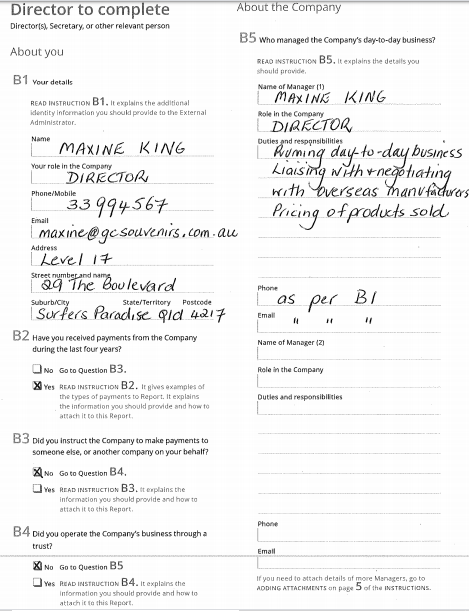 Director to complete
Director(s), Secretary, or other relevant person
About you
B1 Your details
READ INSTRUCTION B1. It explains the additional
identity information you should provide to the External
Administrator.
Name
MAXINE KING
Your role in the Company
DIRECTOR
Phone/Mobile
33994567
Email
maxine@gcsouvenirs.com.au
Address
Level 17
Street number and name
29 The Boulevard
Suburb/City State/Territory Postcode
Surfers Paradise Qld 4217
B2 Have you received payments from the Company
during the last four years?
No Go to Question B3.
Yes READ INSTRUCTION B2. It gives examples of
the types of payments to Report. It explains
the information you should provide and how to
attach it to this Report.
B3 Did you instruct the Company to make payments to
someone else, or another company on your behalf?
No Go to Question B4.
Yes READ INSTRUCTION B3. It explains the
information you should provide and how to
attach it to this Report.
B4 Did you operate the Company's business through a
trust?
No Go to Question B5
Yes READ INSTRUCTION B4. It explains the
information you should provide and how to
attach it to this Report.
About the Company
B5 Who managed the Company's day-to-day business?
READ INSTRUCTION B5. It explains the details you
should provide.
Name of Manager (1)
MAXINE KING
Role in the Company
DIRECTOR
Duties and responsibilities
Running day-to-day business
Liaising with + negotiating
with overseas manufacturers
Pricing of products sold
Phone
as per B1
Email
" " "
Name of Manager (2)
Role in the Company
Duties and responsibilities
Phone
Email
If you need to attach details of more Managers, go to
ADDING ATTACHMENTS on page 5 of the INSTRUCTIONS.